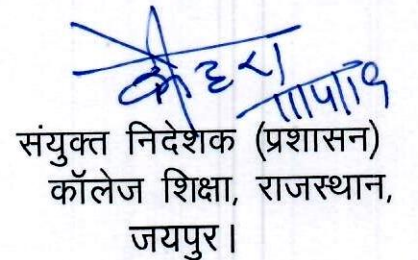 संयुक्त निदेशक (प्रशासन)
कॉलेज शिक्षा, राजस्थान,
जयपुर।